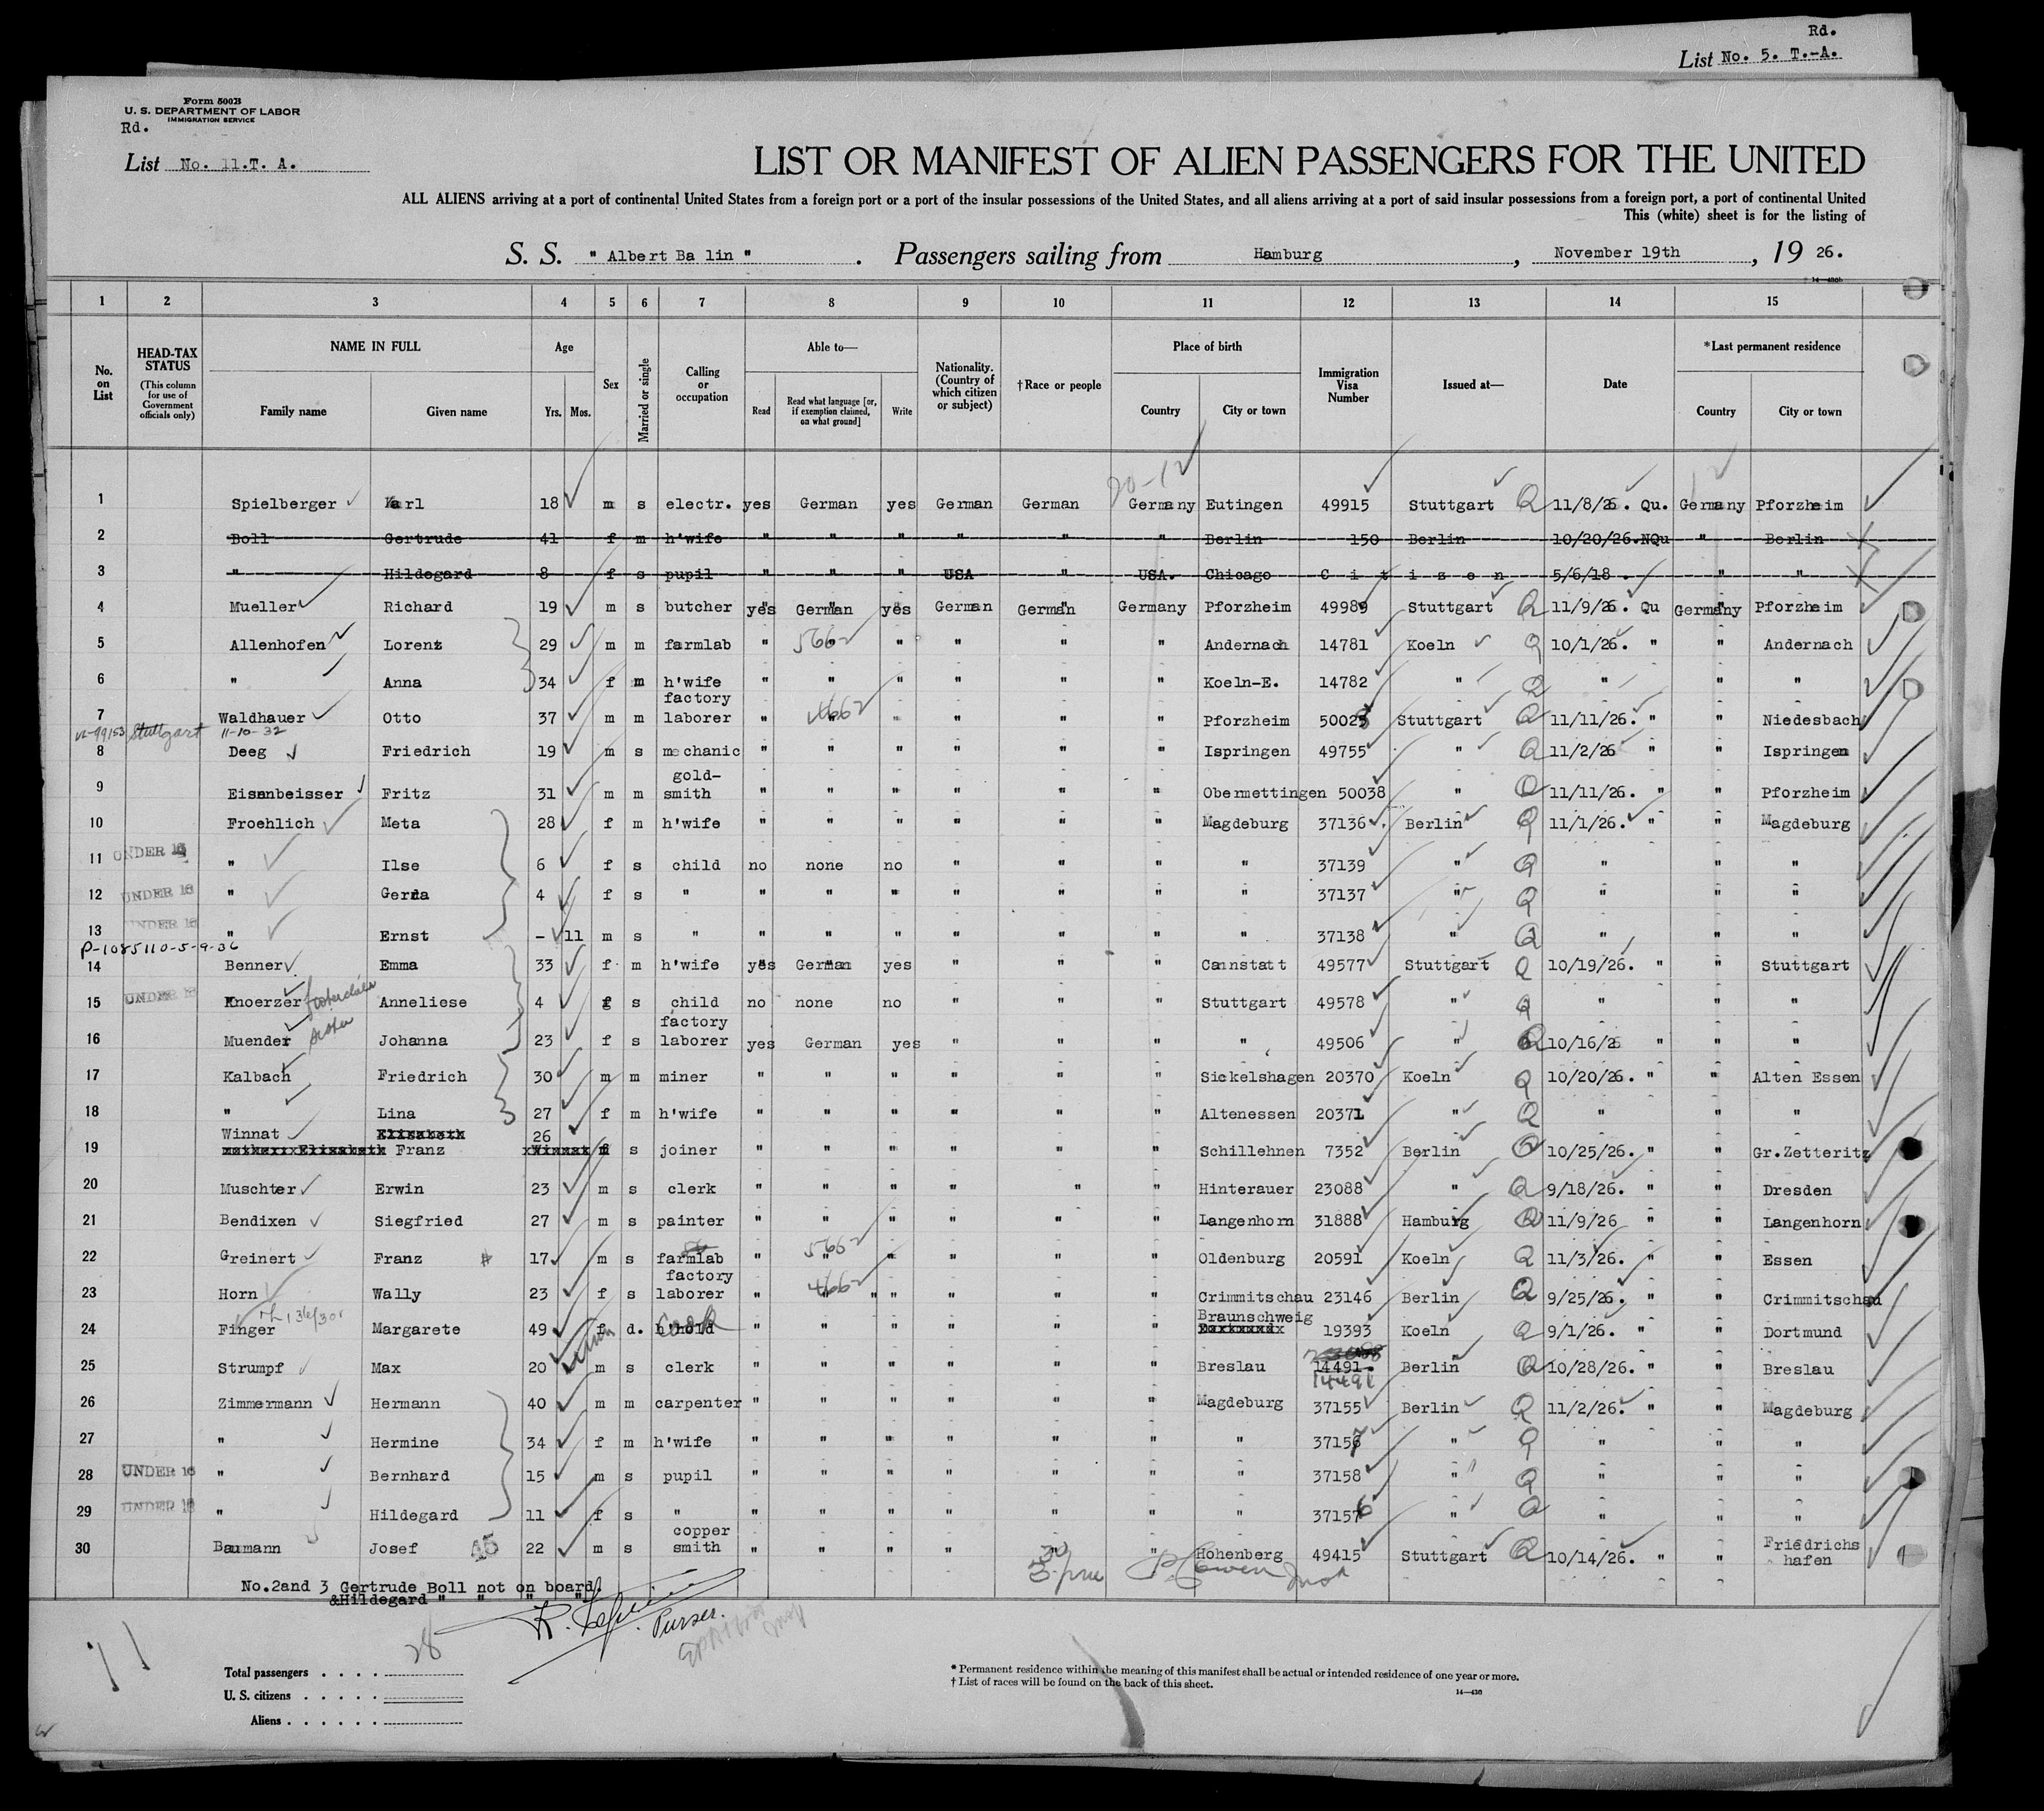 Rd.
List No. 5. T.-A.
Form 500B
U. S. DEPARTMENT OF LABOR
IMMIGRATION SERVICE
Rd.
List No. 11.T. A.
LIST OR MANIFEST OF ALIEN PASSENGERS FOR THE UNITED
ALL ALIENS arriving at a port of continental United States from a foreign port or a port of the insular possessions of the United States, and all aliens arriving at a port of said insular possessions from a foreign port, a port of continental United
This (white) sheet is for the listing of
S. S. " Albert Ba lin " . Passengers sailing from Hamburg , November 19th , 19 26.
1 2 3 4 5 6 7 8 9 10 11 12 13 14 15
No. on List HEAD-TAX STATUS (This column for use of Government officials only) NAME IN FULL Family name Given name Age Yrs. Mos. Sex Married or single Calling or occupation Able to— Read Read what language [or, if exemption claimed, on what ground] Write Nationality. (Country of which citizen or subject) †Race or people Place of birth Country City or town Immigration Visa Number Issued at— Date *Last permanent residence Country City or town
20-12
1 Spielberger Karl 18 m s electr. yes German yes German German Germany Eutingen 49915 Stuttgart Q 11/8/26. Qu. Germany Pforzheim
2 Boll Gertrude 41 f m h'wife " " " " " " Berlin 150 Berlin 10/20/26.NQu " Berlin
3 " Hildegard 8 f s pupil " " " USA " USA. Chicago C i t i z e n 5/6/18. " "
4 Mueller Richard 19 m s butcher yes German yes German German Germany Pforzheim 49989 Stuttgart Q 11/9/26. Qu Germany Pforzheim
5 Allenhofen Lorenz 29 m m farmlab " 566 " " " " Andernach 14781 Koeln Q 10/1/26. " " Andernach
6 " Anna 34 f m h'wife " " " " " " Koeln-E. 14782 " Q " " "
7 Waldhauer Otto 37 m m factory laborer " 466 " " " " Pforzheim 50023 Stuttgart Q 11/11/26. " " Niedesbach
99153 Stuttgart 11-10-32
8 Deeg Friedrich 19 m s mechanic " " " " " " Ispringen 49755 " Q 11/2/26 " " Ispringen
9 Eisenbeisser Fritz 31 m m gold-smith " " " " " " Obermettingen 50038 " Q 11/11/26. " " Pforzheim
10 Froehlich Meta 28 f m h'wife " " " " " " Magdeburg 37136. Berlin Q 11/1/26. " " Magdeburg
11 UNDER 16 " Ilse 6 f s child no none no " " " " 37139 " Q " " "
12 UNDER 16 " Gerda 4 f s " " " " " " " " 37137 " Q " " "
13 UNDER 16 " Ernst - 11 m s " " " " " " " " 37138 " Q " " "
P-1085110-5-9-36
14 Benner Emma 33 f m h'wife yes German yes " " " Cannstatt 49577 Stuttgart Q 10/19/26. " " Stuttgart
15 UNDER 16 Knoerzer Anneliese 4 f s child no none no " " " Stuttgart 49578 " Q " " "
16 Muender sister Johanna 23 f s factory laborer yes German yes " " " " 49506 " Q 10/16/26 " " "
17 Kalbach Friedrich 30 m m miner " " " " " " Sickelshagen 20370 Koeln Q 10/20/26. " " Alten Essen
18 " Lina 27 f m h'wife " " " " " " Altenessen 20371 " Q " " "
19 Winnat Franz 26 s joiner " " " " " " Schillehnen 7352 Berlin Q 10/25/26. " " Gr.Zetteritz
20 Muschter Erwin 23 m s clerk " " " " " " Hinterauer 23088 " Q 9/18/26. " " Dresden
21 Bendixen Siegfried 27 m s painter " " " " " " Langenhorn 31888 Hamburg Q 11/9/26 " " Langenhorn
22 Greinert Franz # 17 m s farmlab " 566 " " " " Oldenburg 20591 Koeln Q 11/3/26. " " Essen
23 Horn Wally 23 f s factory laborer " 466 " " " " Crimmitschau 23146 Berlin Q 9/25/26. " " Crimmitschau
24 Finger Margarete 49 f d. h'hold cook " " " " " " Braunschweig 19393 Koeln Q 9/1/26. " " Dortmund
25 Strumpf Max 20 m s clerk " " " " " " Breslau 14491. 14491 Berlin Q 10/28/26. " " Breslau
26 Zimmermann Hermann 40 m m carpenter " " " " " " Magdeburg 37155 Berlin Q 11/2/26. " " Magdeburg
27 " Hermine 34 f m h'wife " " " " " " " 37157 " Q " " "
28 UNDER 16 " Bernhard 15 m s pupil " " " " " " " 37158 " Q " " "
29 UNDER 16 " Hildegard 11 f s " " " " " " " " 37156 " Q " " "
30 Baumann Josef 45 22 m s copper smith " " " " " " Hohenberg 49415 Stuttgart Q 10/14/26. " " Friedrichs hafen
No.2and 3 Gertrude Boll not on board.
&Hildegard " " " "
Purser.
11
28
Total passengers . . . .
U. S. citizens . . . . .
Aliens . . . . . .
* Permanent residence within the meaning of this manifest shall be actual or intended residence of one year or more.
† List of races will be found on the back of this sheet.
14—430